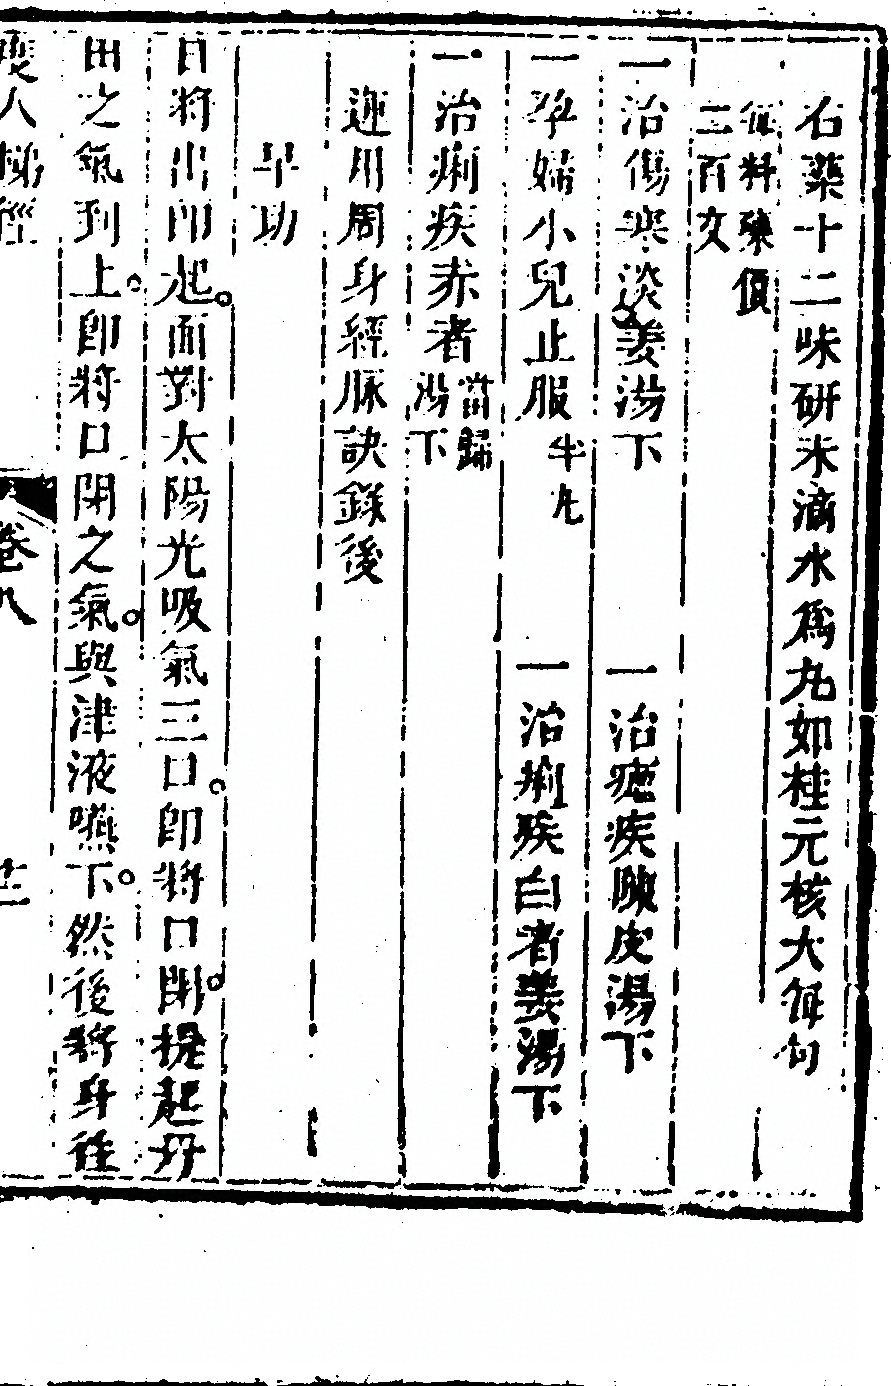 石藥十二味研末滴水為丸如桂元核大每勾
每料藥價
二百文
一治傷寒淡姜湯下
一治瘧疾陳皮湯下
一孕婦小兒止服半丸
一治痢疾白者姜湯下
一治痢疾赤者當歸湯下
運用周身經脉訣錄後
早功
日將出即起面對太陽光吸氣三口即將口閉提起丹
田之氣到上即將口閉之氣與津液嚥下然後將身往
度人梯徑
卷八